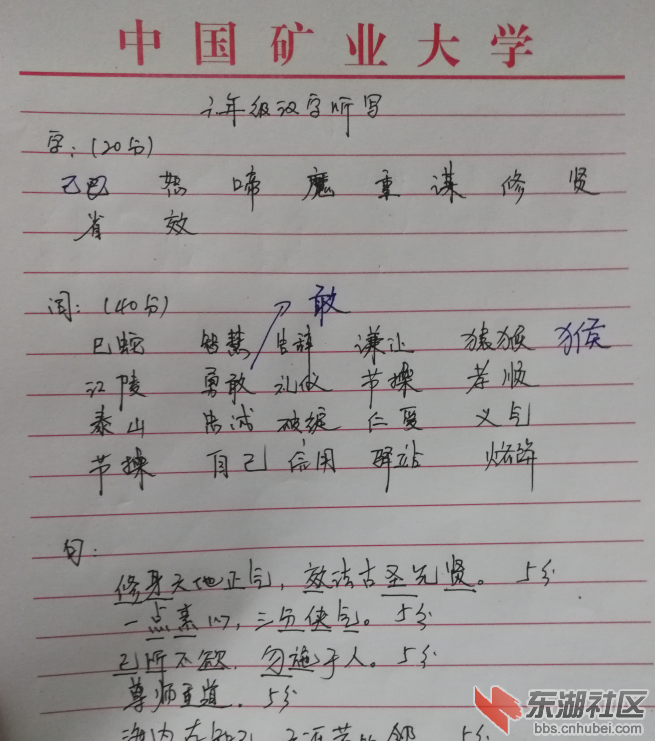 中国矿业大学
六年级汉字听写
字：(20分)
己巴 怒 啼 魔 重 谋 修 贤
省 效
词：(40分) 敢
巴蛇 智慧 告辞 谦让 猿猴 猴
江陵 勇敢 礼仪 节操 孝顺
泰山 忠诚 破绽 仁爱 义气
节操 自己 信用 驿站 烙饼
句：
修身天地正气，效法古圣先贤。 5分
一点素心，三分侠气。 5分
己所不欲，勿施于人。 5分
尊师重道． 5分
海内存知己，天涯若比邻 5分
东湖社区
bbs.cnhubei.com